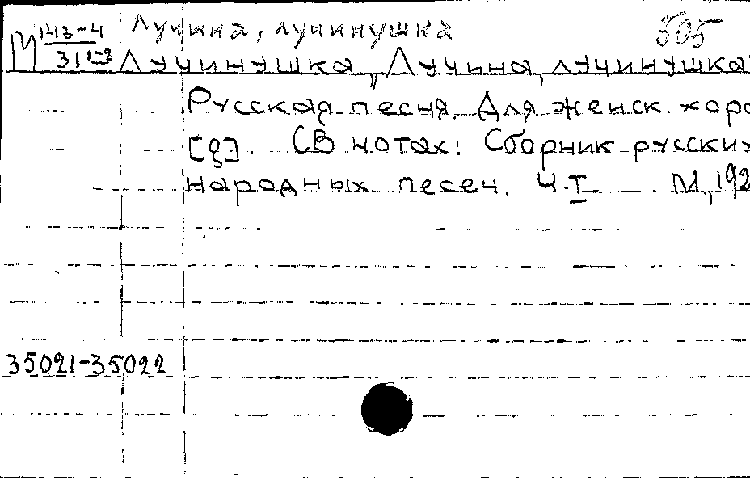 М 143-4 Лучина, лучинушка 505
311-2 Лучинушка „Лучина, лучинушка
Русская песня. Для женск. хора
[g]. [В нотах: Сборник русских
народных песен. Ч. I М, 192
35021-35022